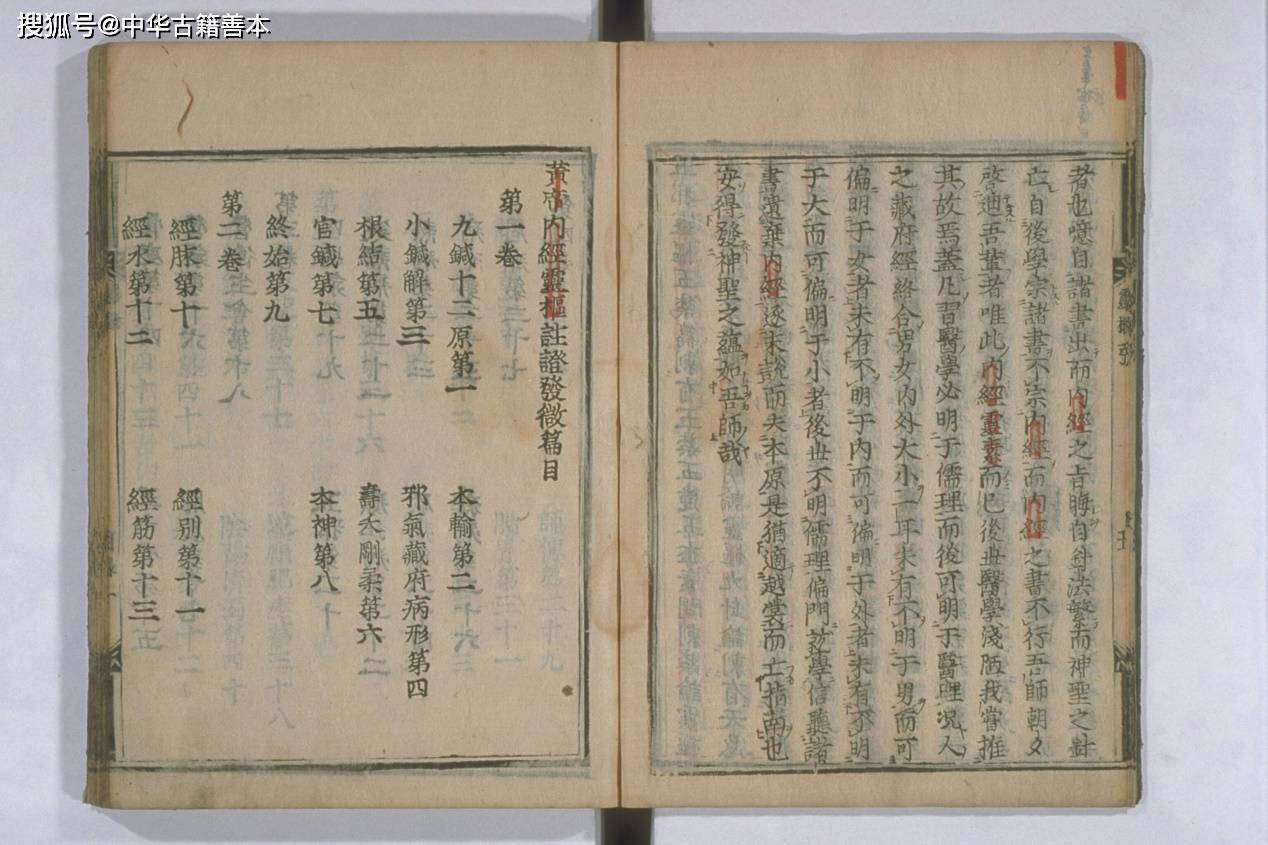 搜狐号@中华古籍善本
者也憶自諸書出而內經之旨晦自弁洪繁而神聖之針
亡自後學宗諸書不宗內經而內經之書不行吾師朝夕
啓迪吾輩者唯此內經靈素而已後世醫學淺陋我嘗推
其故焉蓋凡習醫學必明于儒理而後可明于醫理况人
之藏府經絡合男女內外大小一耳未有不明于男而可
偏明于女者未有不明于內而可偏明于外者未有不明
于大而可偏明于小者後世不明儒理偏門莚學信聽諸
書遺棄內經逐末說而失本原是猶適越裳而亡指南也
安得發神聖之蘊如吾師哉
黃帝內經靈樞註證發微篇目
第一卷
九鍼十二原第一 本輸第二
小鍼解第三 邪氣藏府病形第四
根結第五 壽夭剛柔第六
官鍼第七 本神第八
終始第九
第二卷
經脉第十 經别第十一
經水第十二 經筋第十三